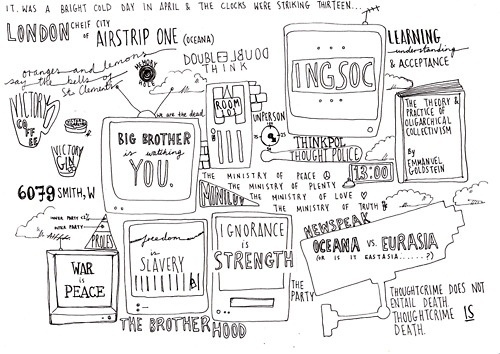 IT WAS A BRIGHT COLD DAY IN APRIL & THE CLOCKS WERE STRIKING THIRTEEN...
LONDON CHEIF CITY OF AIRSTRIP ONE (OCEANA)
oranges and lemons
say the bells of
St Clements
MEMORY HOLE
DOUBLE DOUBLE
THINK
INGSOC
LEARNING
understanding
& ACCEPTANCE
VICTORY
COFFEE
VICTORY
GIN
we are the dead
BIG BROTHER
is watching
YOU.
ROOM
101
UNPERSON
THINKPOL
THOUGHT POLICE
13:00
THE THEORY &
PRACTICE OF
OLIGARCHICAL
COLLECTIVISM
By
EMMANUEL
GOLDSTEIN
6079 SMITH, W
THE MINISTRY OF PEACE
THE MINISTRY OF PLENTY
MINILUV
THE MINISTRY OF LOVE
THE MINISTRY OF TRUTH
INNER PARTY
OUTER PARTY
PROLES
WAR
is
PEACE
freedom
is
SLAVERY
IGNORANCE
is
STRENGTH
THE
PARTY
THE BROTHERHOOD
NEWSPEAK
OCEANA vs. EURASIA
(OR IS IT EASTASIA......?)
THOUGHTCRIME DOES NOT
ENTAIL DEATH.
THOUGHTCRIME IS
DEATH.